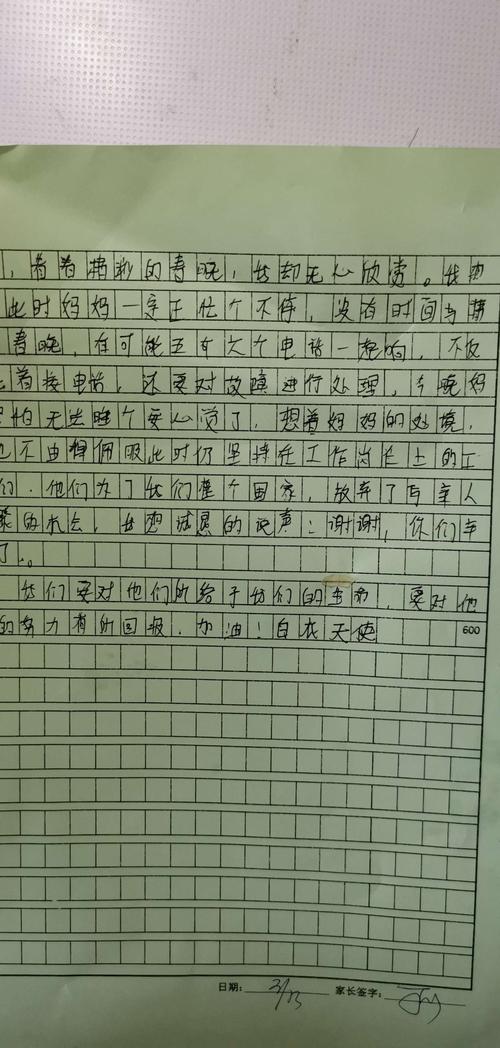 ，看着精彩的春晚，我却无心欣赏。我知
此时妈妈一定正忙个不停，没有时间与
春晚，在可能五六个电话一起响，不仅
着接电话，还要对故障进行处理，今晚妈
怕无法睡个安心觉了，想着妈妈的处境，
也不由得佩服此时仍坚持在工作岗位上的工
们．他们为了我们整个国家，放弃了与亲人
聚的机会，我想诚恳的说声：谢谢，你们辛
了。
我们要对他们所给予我们的，要对他
的努力有所回报．加油！白衣天使
600
日期： 3/13 家长签字：